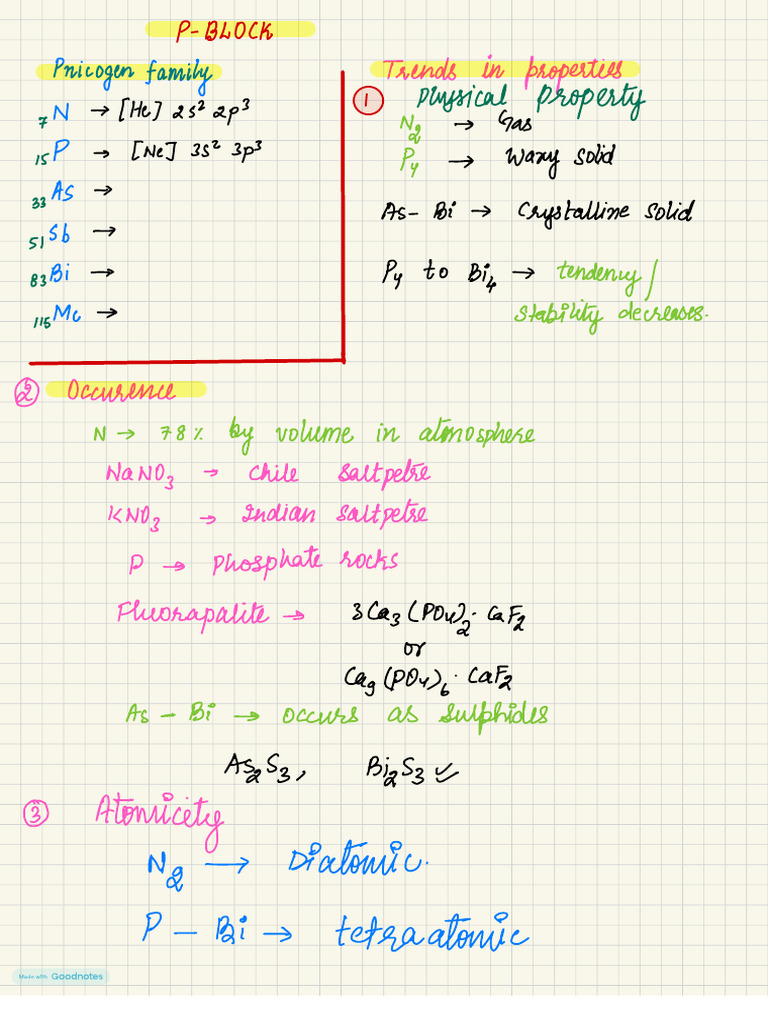 P-BLOCK
Pnicogen family
₇N → [He] 2s² 2p³
₁₅P → [Ne] 3s² 3p³
₃₃As →
₅₁Sb →
₈₃Bi →
₁₁₅Mc →
Trends in properties
① Physical property
N₂ → Gas
P₄ → Waxy solid
As- Bi → Crystalline solid
P₄ to Bi₄ → tendency/
stability decreases.
② Occurence
N → 78% by volume in atmosphere
NaNO₃ → Chile saltpetre
KNO₃ → Indian saltpetre
P → Phosphate rocks
Fluorapalite → 3Ca₃(PO₄)₂·CaF₂
or
Ca₉(PO₄)₆·CaF₂
As - Bi → occurs as sulphides
As₂S₃, Bi₂S₃ ✓
③ Atomicety
N₂ → Diatomic.
P - Bi → tetraatomic
Made with Goodnotes